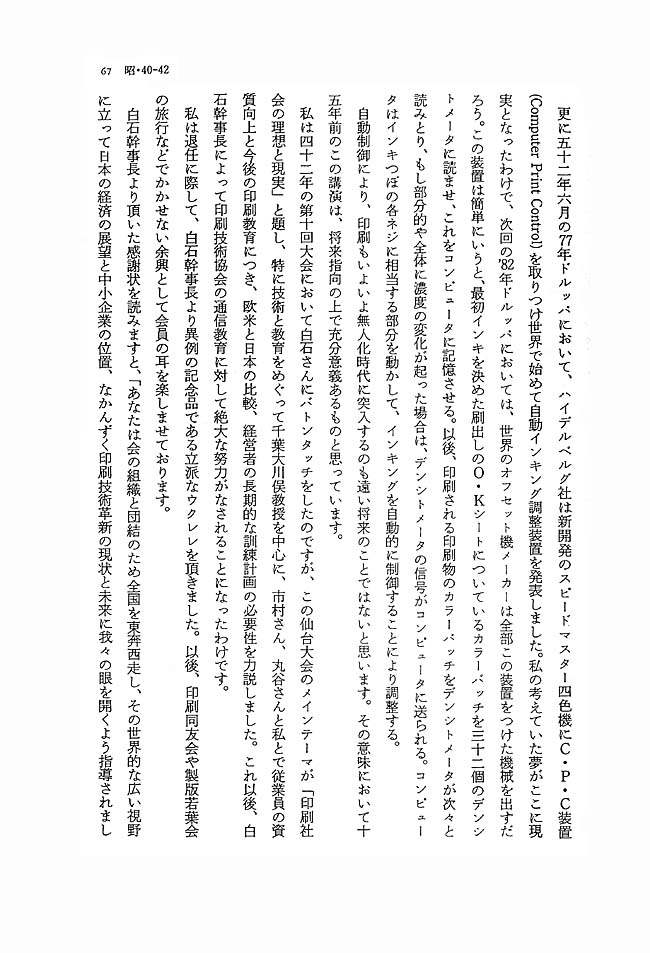 67　昭・40-42
更に五十二年六月の77年ドルッパにおいて、ハイデルベルグ社は新開発のスピードマスター四色機にC・P・C装置
(Computer Print Control)を取りつけ世界で始めて自動インキング調整装置を発表しました。私の考えていた夢がここに現
実となったわけで、次回の'82年ドルッパにおいては、世界のオフセット機メーカーは全部この装置をつけた機械を出すだ
ろう。この装置は簡単にいうと、最初インキを決めた刷出しのO・Kシートについているカラーパッチを三十二個のデンシ
トメータに読ませ、これをコンピュータに記憶させる。以後、印刷される印刷物のカラーパッチをデンシトメータが次々と
読みとり、もし部分的や全体に濃度の変化が起った場合は、デンシトメータの信号がコンピュータに送られる。コンピュー
タはインキつぼの各ネジに相当する部分を動かして、インキングを自動的に制御することにより調整する。
自動制御により、印刷もいよいよ無人化時代に突入するのも遠い将来のことではないと思います。その意味において十
五年前のこの講演は、将来指向の上で充分意義あるものと思っています。
私は四十二年の第十回大会において白石さんにバトンタッチをしたのですが、この仙台大会のメインテーマが「印刷社
会の理想と現実」と題し、特に技術と教育をめぐって千葉大川俣教授を中心に、市村さん、丸谷さんと私とで従業員の資
質向上と今後の印刷教育につき、欧米と日本の比較、経営者の長期的な訓練計画の必要性を力説しました。これ以後、白
石幹事長によって印刷技術協会の通信教育に対して絶大な努力がなされることになったわけです。
私は退任に際して、白石幹事長より異例の記念品である立派なウクレレを頂きました。以後、印刷同友会や製版若葉会
の旅行などでかかせない余興として会員の耳を楽しませております。
白石幹事長より頂いた感謝状を読みますと、「あなたは会の組織と団結のため全国を東奔西走し、その世界的な広い視野
に立って日本の経済の展望と中小企業の位置、なかんずく印刷技術革新の現状と未来に我々の眼を開くよう指導されまし